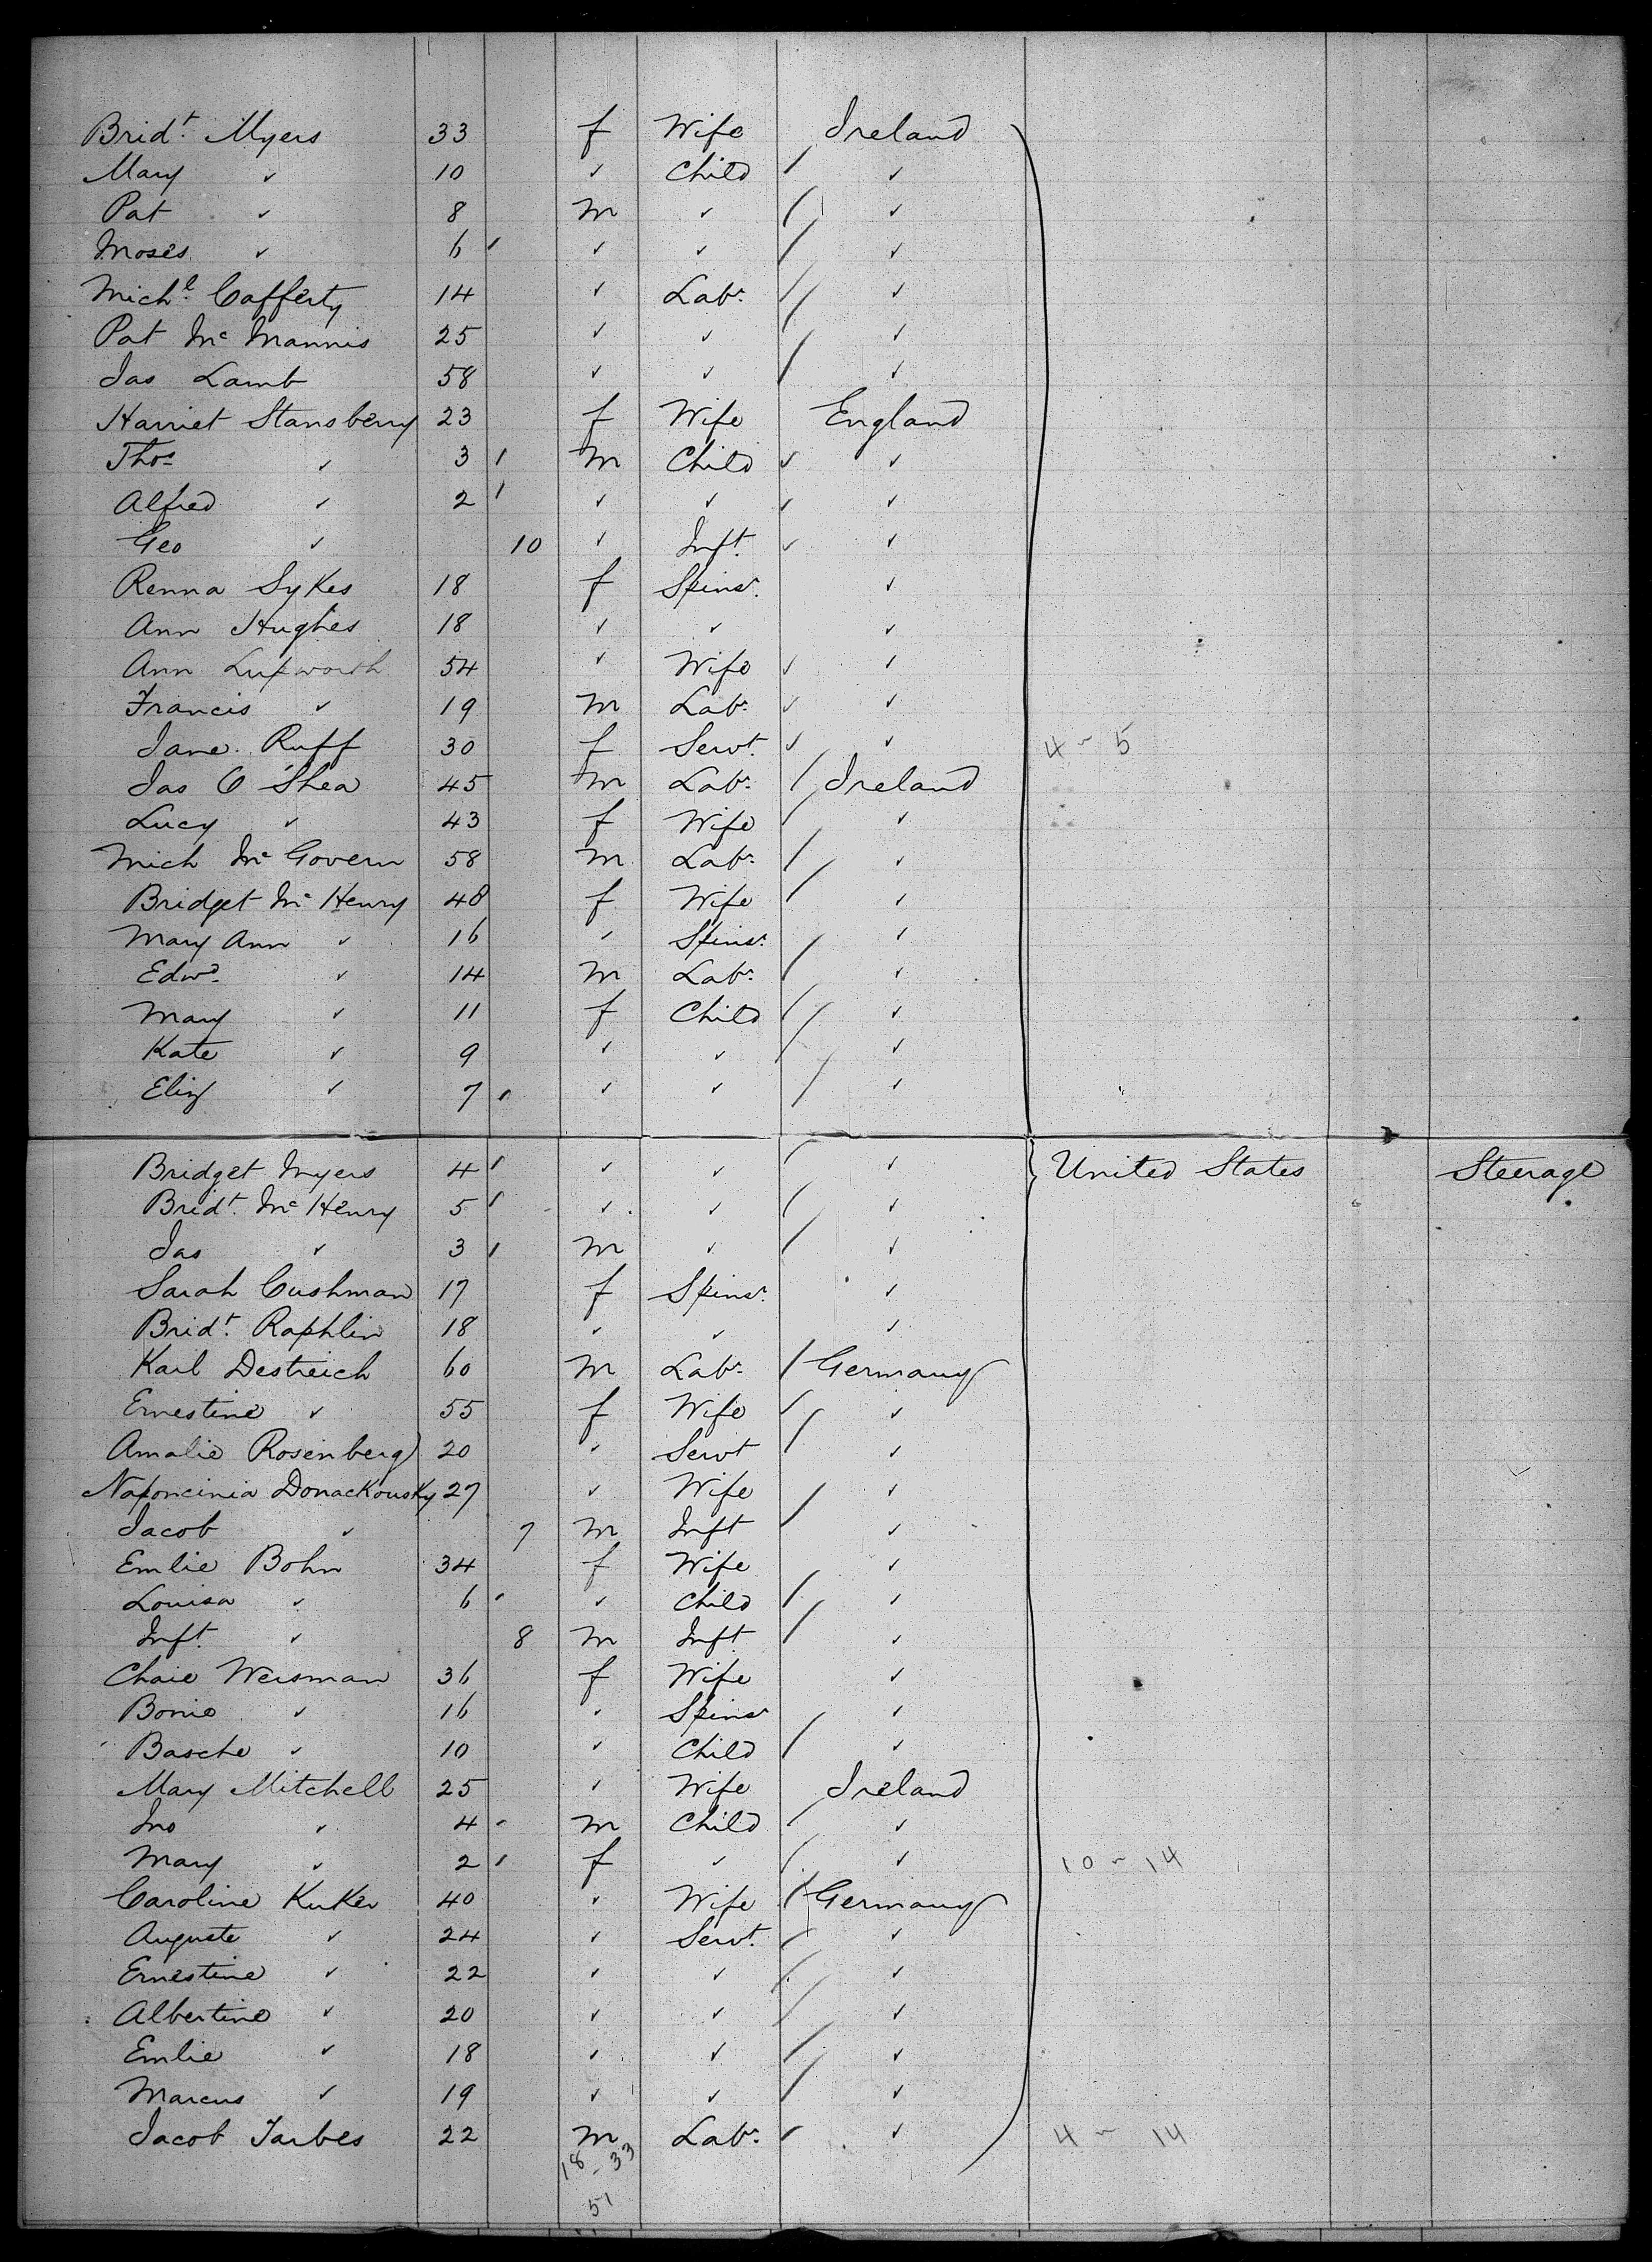 Bridt. Myers 33 f Wife Ireland
Mary ✓ 10 ✓ Child / ✓
Pat ✓ 8 m ✓ / ✓
Moses ✓ 6 ✓ ✓ / ✓
Michl. Cafferty 14 ✓ Labr. / ✓
Pat Mc Mannis 25 ✓ ✓ / ✓
Jas Lamb 58 ✓ ✓ / ✓
Harriet Stansberry 23 f Wife England
Thos ✓ 3 m Child ✓ ✓
Alfred ✓ 2 ✓ ✓ ✓ ✓
Geo ✓ 10 ✓ Inft. ✓ ✓
Renna Sykes 18 f Spinsr. ✓
Ann Hughes 18 ✓ ✓ ✓
Ann Lupworth 54 ✓ Wife ✓ ✓
Francis ✓ 19 m Labr. ✓ ✓
Jane Ruff 30 f Servt. ✓ ✓ 4 ~ 5
Jas O'Shea 45 m Labr. / Ireland
Lucy ✓ 43 f Wife / ✓
Mich Mc Govern 58 m Labr. / ✓
Bridget Mc Henry 48 f Wife / ✓
Mary Ann ✓ 16 ✓ Spinsr. ✓
Edwd. ✓ 14 m Labr. / ✓
Mary ✓ 11 f Child / ✓
Kate ✓ 9 ✓ ✓ / ✓
Eliz ✓ 7 ✓ ✓ / ✓
Bridget Myers 4 ✓ ✓ / ✓ United States Steerage
Bridt. Mc Henry 5 ✓ ✓ / ✓
Jas ✓ 3 m ✓ / ✓
Sarah Cushman 17 f Spinsr. ✓
Bridt. Raphlin 18 ✓ ✓ ✓
Karl Destreich 60 m Labr. / Germany
Ernestine ✓ 55 f Wife / ✓
Amalie Rosenberg 20 ✓ Servt / ✓
Naponcinia Donackousky 27 ✓ Wife ✓
Jacob ✓ 7 m Inft / ✓
Emlie Bohn 34 f Wife ✓
Louisa ✓ 6 ✓ Child / ✓
Inft. ✓ 8 m Inft / ✓
Chaie Weisman 36 f Wife ✓
Bonie ✓ 16 ✓ Spinsr ✓
Basche ✓ 10 ✓ Child / ✓
Mary Mitchell 25 ✓ Wife Ireland
Jno ✓ 4 m Child / ✓
Mary ✓ 2 f ✓ / ✓ 10 ~ 14
Caroline Kuker 40 ✓ Wife / Germany
Auguste ✓ 24 ✓ Servt. / ✓
Ernestine ✓ 22 ✓ ✓ / ✓
Albertine ✓ 20 ✓ ✓ / ✓
Emlie ✓ 18 ✓ ✓ / ✓
Marcus ✓ 19 ✓ ✓ / ✓
Jacob Tarbes 22 m Labr. / ✓ 4 ~ 14
18 - 33
51